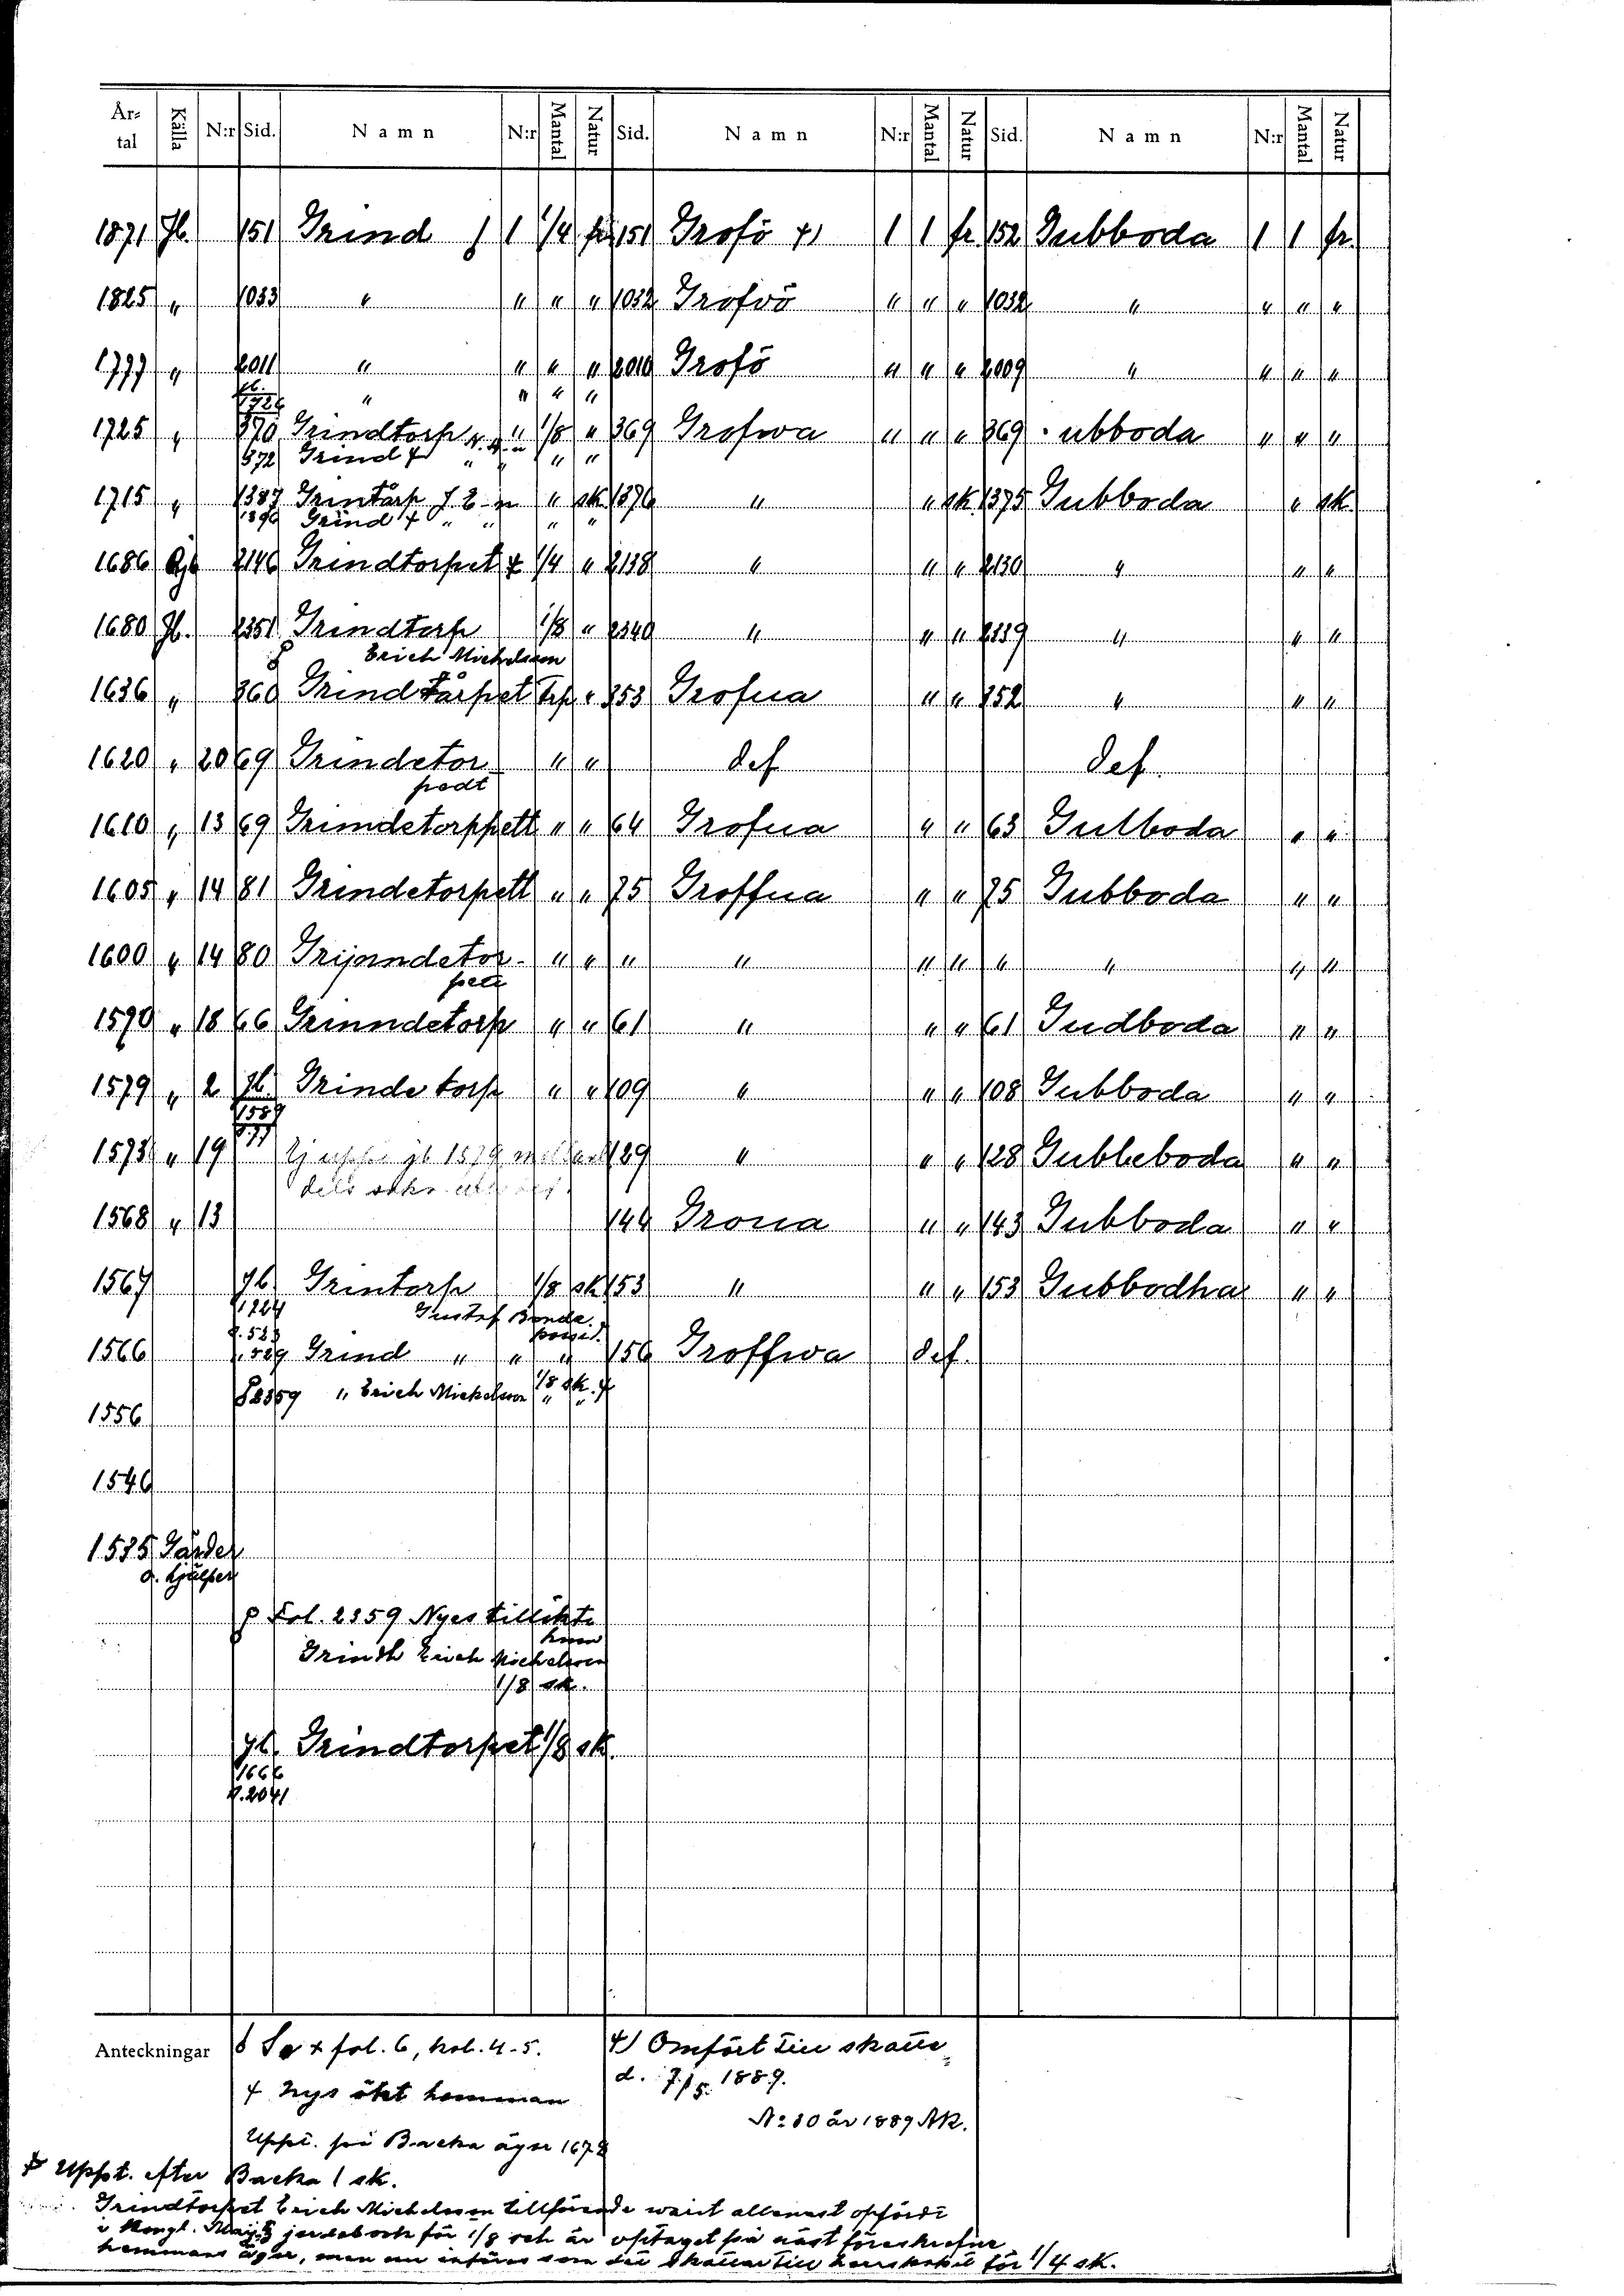 År-tal Källa N:r Sid. Namn N:r Mantal Natur Sid. Namn N:r Mantal Natur Sid. Namn N:r Mantal Natur
1871 Jb. 151 Grind 1 1/4 fr 151 Grofö 4) 1 1 fr. 152 Gubboda 1 1 fr.
1825 " 1033 " " " " 1032 Grofvö " " " 1032 " " " "
1777 " 2011 " " " " 2010 Grofö " " " 2009 " " " "
jb. 1726 " " " "
1725 " 370 Grindtorp " 1/8 " 369 Grofwa " " " 369 ubboda " " "
372 Grind " " " "
1715 " 1387 Grintårp " sk. 1376 " " sk. 1375 Gubboda " sk.
1390 Grind " " " "
1686 2146 Grindtorpet 1/4 " 2138 " " " 2130 " " "
1680 Jb. 2351 Grindtorp 1/8 " 2340 " " " 2339 " " "
Erich Michelsson
1636 " 360 Grindtårpet trp " 353 Grofua " " 352 " " "
1620 " 20 69 Grindetor- " " def def.
podt
1610 " 13 69 Grindetorppett " " 64 Grofua " " 63 Gulboda " "
1605 " 14 81 Grindetorpett " " 75 Groffua " " 75 Gubboda " "
1600 " 14 80 Grijndetor- " " " " " " " " " "
pett
1590 " 18 66 Grinndetorp " " 61 " " " 61 Gudboda " "
1579 " 2 jb. Grinde torp " " 109 " " " 108 Gubboda " "
1573 " 19 jb 1579 129 " " " 128 Gubbeboda " "
1568 " 13 144 Groua " " 143 Gubboda " "
1567 jb. Grintorp 1/8 sk 153 " " " 153 Gubbodha " "
Gustaf Bonde.
1566 Grind " " " 156 Groffwa def.
2359 " Erich Mickelsson 1/8 sk.
1556
1546
1535 Gärder
o. hjälper
Fol. 2359 Nyes tillökte
hmn
Grindh Erich Michelsson
1/8 sk.
jb. Grindtorpet 1/8 sk.
1666
p. 2041
Anteckningar Se + fol. 6, kol. 4-5. 4) Omfört till skatte
d. 7/5 1889.
+ Nys ökt hemman
N:o 30 år 1889 AK.
Uppt. på Backa ägor 1672
Uppt. efter Backa 1 sk.
Grindtorpet Erich Michelsson tillförende warit allenast opfördt
i Kongl. Maij:tz jordebook för 1/8 och är optaget på näst föreskrefne
hemmans ägor, men nu införes som det skattar till herrskapet för 1/4 sk.